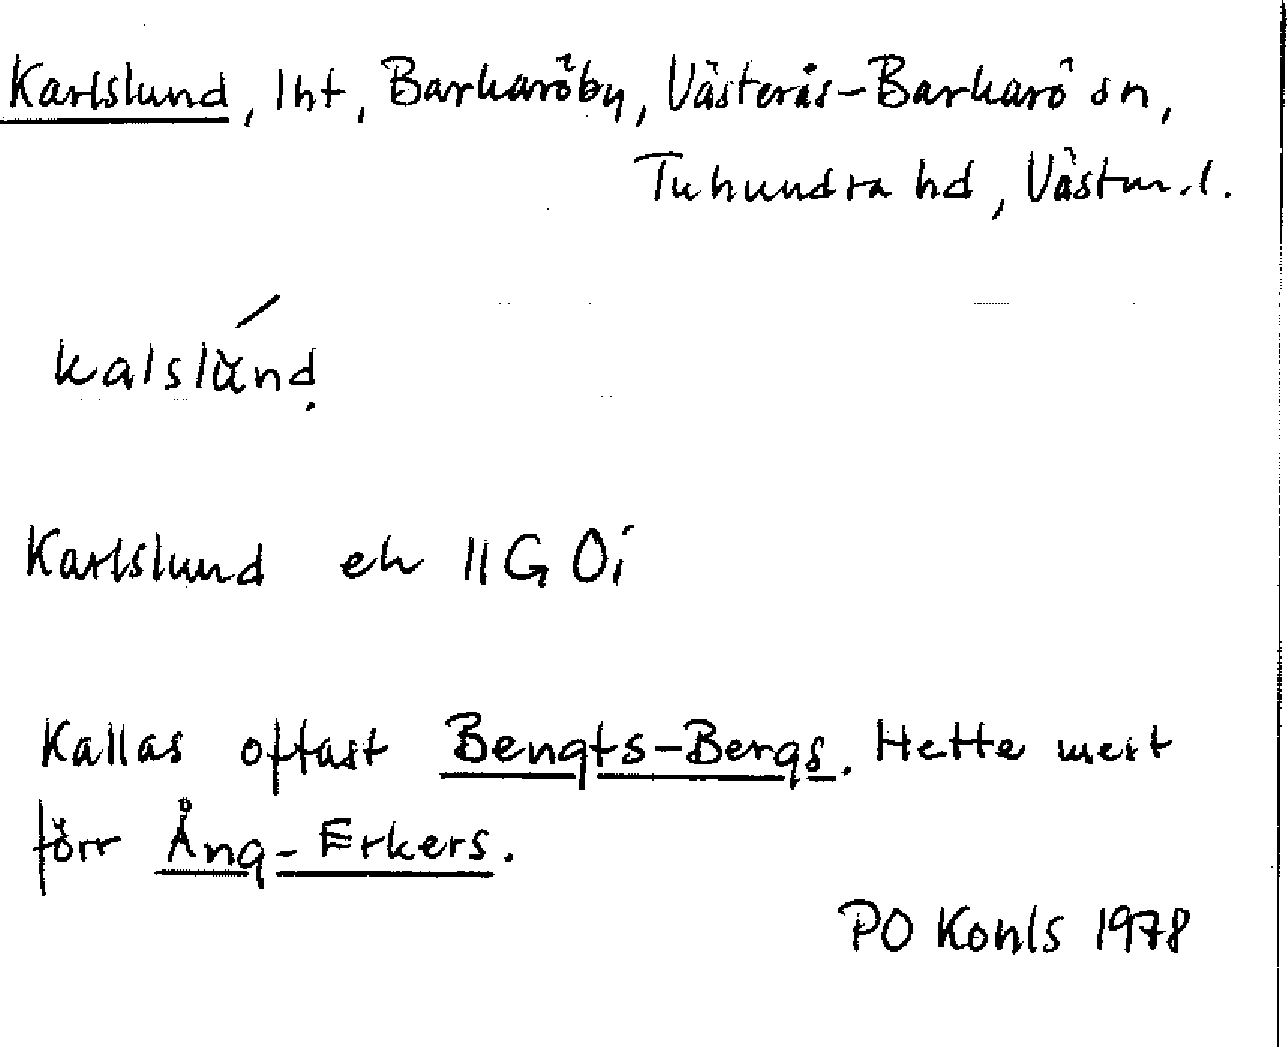 Karlslund, lht, Barkaröby, Västerås-Barkarö sn,
Tuhundra hd, Västm.l.
kalslùnd.
Karlslund ek 11G 0i
Kallas oftast Bengts-Bergs. Hette mest
förr Ång-Erkers.
PO Kohls 1978